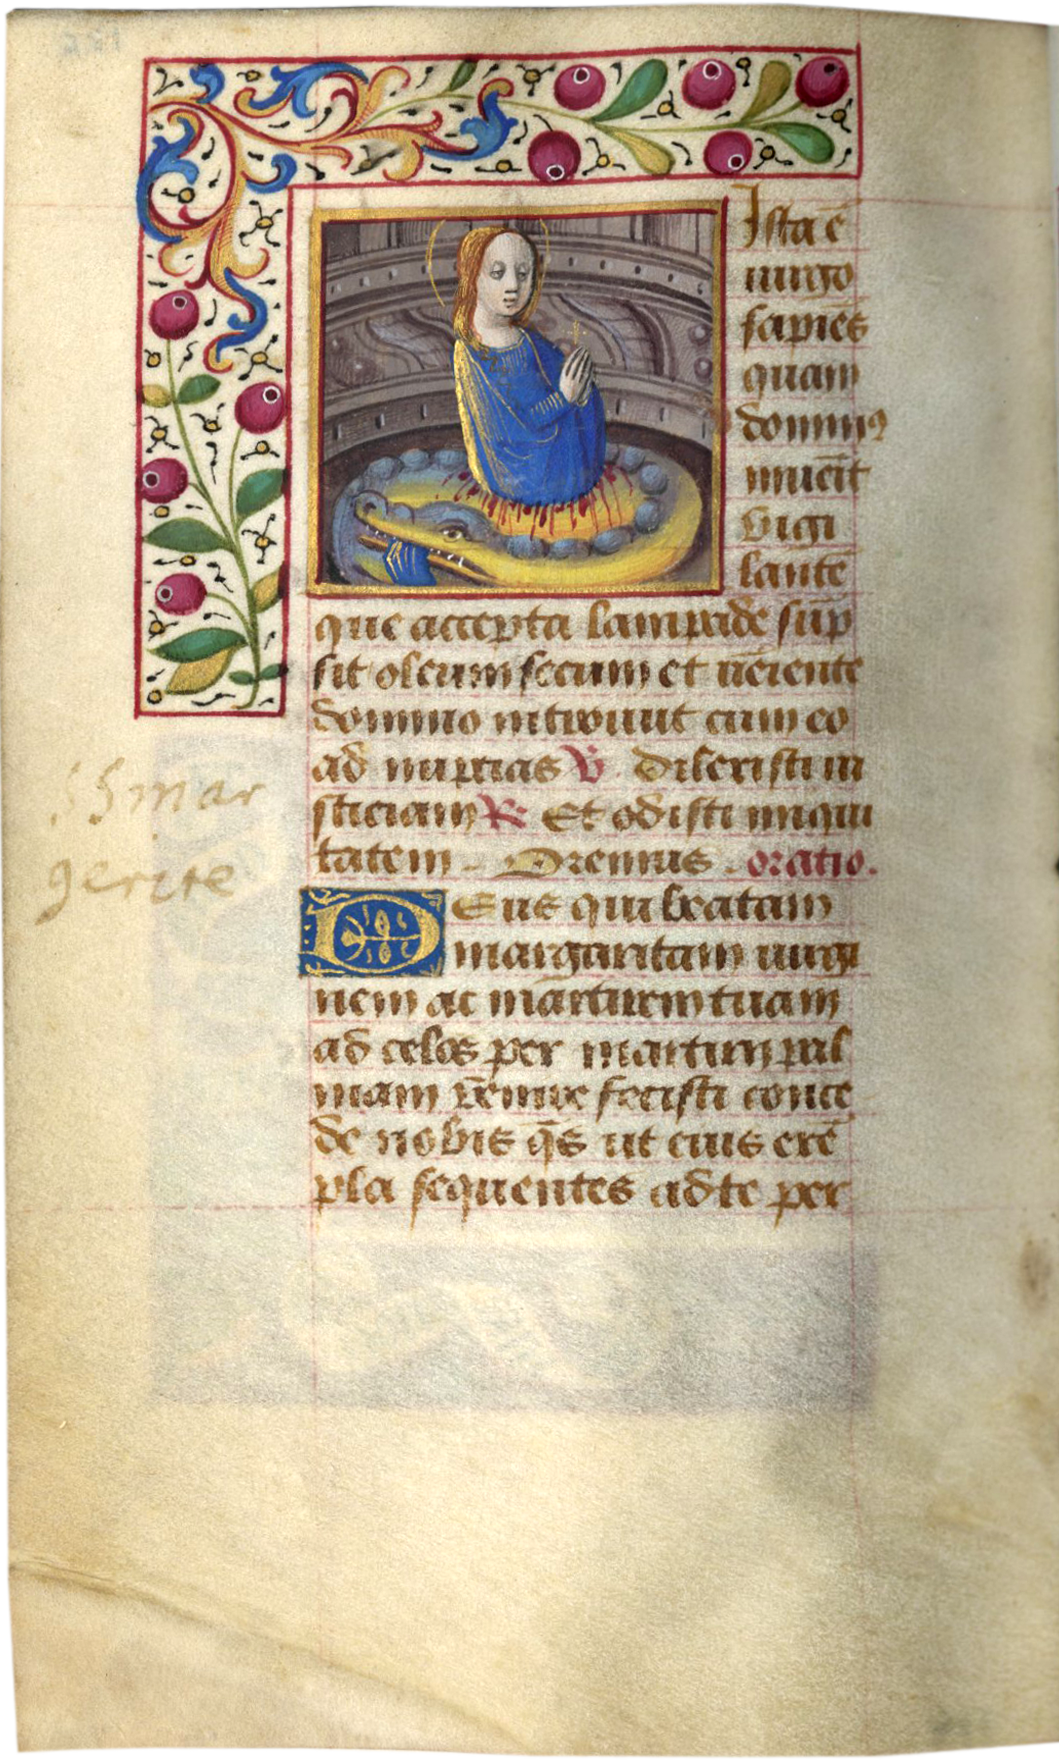 Ista ē
uirgo
sapiēs
quam
domin9
inuēit
vigi
lantē
que accepta lampade sup
sit oleum secum et ueiente
domino introiuit cum eo
ad nuptias V. Dilexisti iu
sticiam R. Et odisti iniqui
tatem. Oremus. oratio.
Deus qui beatam
margaritam uirgi
nem ac martirem tuam
ad celos per martirii pal
mam uēnire fecisti conce
de nobis q̄s ut eius exē
pla sequentes ad te per
mar
gerite